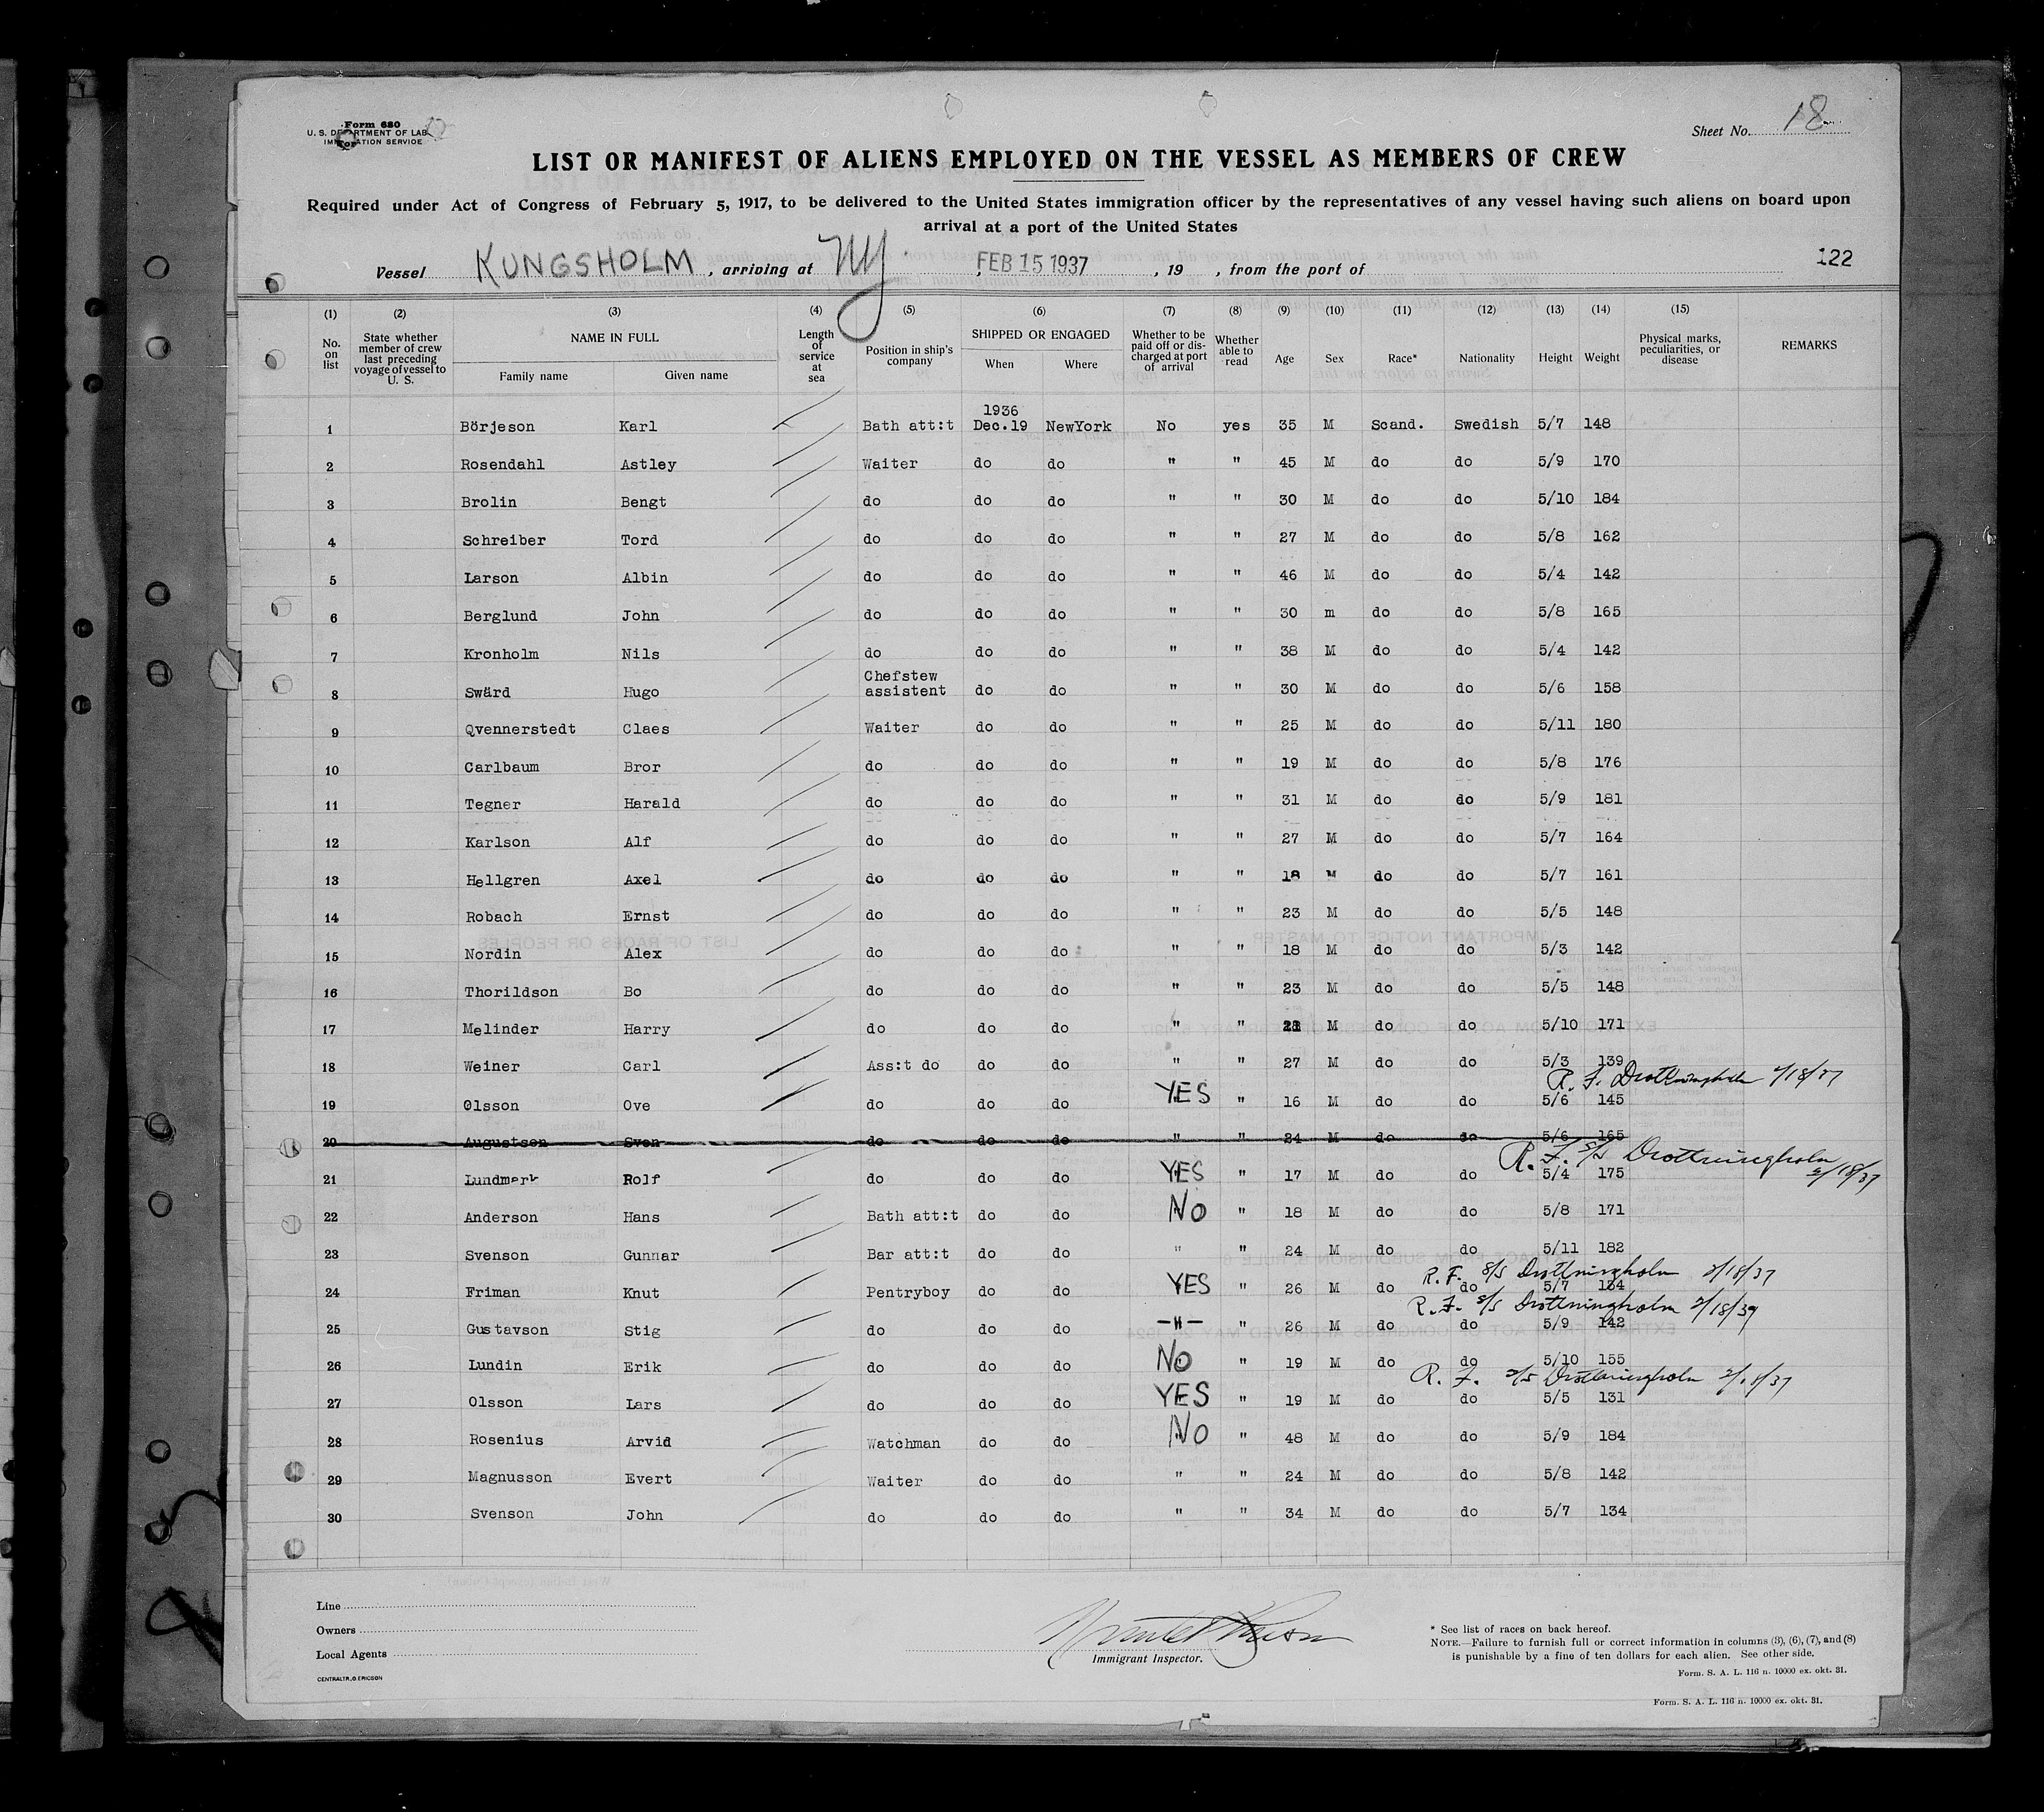 Form 680
U. S. DEPARTMENT OF LAB
IMMIGRATION SERVICE
Sheet No. 18
LIST OR MANIFEST OF ALIENS EMPLOYED ON THE VESSEL AS MEMBERS OF CREW
Required under Act of Congress of February 5, 1917, to be delivered to the United States immigration officer by the representatives of any vessel having such aliens on board upon
arrival at a port of the United States
Vessel KUNGSHOLM, arriving at NY, FEB 15 1937, 19 , from the port of 122
(1) (2) (3) (4) (5) (6) (7) (8) (9) (10) (11) (12) (13) (14) (15)
No. on list State whether member of crew last preceding voyage of vessel to U. S. NAME IN FULL Family name Given name Length of service at sea Position in ship's company SHIPPED OR ENGAGED When Where Whether to be paid off or discharged at port of arrival Whether able to read Age Sex Race* Nationality Height Weight Physical marks, peculiarities, or disease REMARKS
1936
1 Börjeson Karl Bath att:t Dec.19 NewYork No yes 35 M Scand. Swedish 5/7 148
2 Rosendahl Astley Waiter do do " " 45 M do do 5/9 170
3 Brolin Bengt do do do " " 30 M do do 5/10 184
4 Schreiber Tord do do do " " 27 M do do 5/8 162
5 Larson Albin do do do " " 46 M do do 5/4 142
6 Berglund John do do do " " 30 m do do 5/8 165
7 Kronholm Nils do do do " " 38 M do do 5/4 142
Chefstew
8 Swärd Hugo assistent do do " " 30 M do do 5/6 158
9 Qvennerstedt Claes Waiter do do " " 25 M do do 5/11 180
10 Carlbaum Bror do do do " " 19 M do do 5/8 176
11 Tegner Harald do do do " " 31 M do do 5/9 181
12 Karlson Alf do do do " " 27 M do do 5/7 164
13 Hellgren Axel do do do " " 18 M do do 5/7 161
14 Robach Ernst do do do " " 23 M do do 5/5 148
15 Nordin Alex do do do " " 18 M do do 5/3 142
16 Thorildson Bo do do do " " 23 M do do 5/5 148
17 Melinder Harry do do do " " M do do 5/10 171
18 Weiner Carl Ass:t do do do " " 27 M do do 5/3 139
R. F. Drottningholm 2/18/37
19 Olsson Ove do do do YES " 16 M do do 5/6 145
20 Augustson Sven do do do " " 24 M do do 5/6 165
R. F. S/S Drottningholm 2/18/37
21 Lundmark Rolf do do do YES " 17 M do do 5/4 175
22 Anderson Hans Bath att:t do do No " 18 M do do 5/8 171
23 Svenson Gunnar Bar att:t do do " " 24 M do do 5/11 182
R. F. S/S Drottningholm 2/18/37
24 Friman Knut Pentryboy do do YES " 26 M do do 5/7 134
R. F. S/S Drottningholm 2/18/37
25 Gustavson Stig do do do -"- " 26 M do do 5/9 142
26 Lundin Erik do do do NO " 19 M do do 5/10 155
R. F. S/S Drottningholm 2/18/37
27 Olsson Lars do do do YES " 19 M do do 5/5 131
28 Rosenius Arvid Watchman do do NO " 48 M do do 5/9 184
29 Magnusson Evert Waiter do do " " 24 M do do 5/8 142
30 Svenson John do do do " " 34 M do do 5/7 134
Line
Owners
Local Agents
CENTRALTR., G. ERICSON
Immigrant Inspector.
* See list of races on back hereof.
NOTE.—Failure to furnish full or correct information in columns (3), (6), (7), and (8)
is punishable by a fine of ten dollars for each alien. See other side.
Form. S. A. L. 116 n. 10000 ex. okt. 31.
Form. S. A. L. 116 n. 10000 ex. okt. 31.